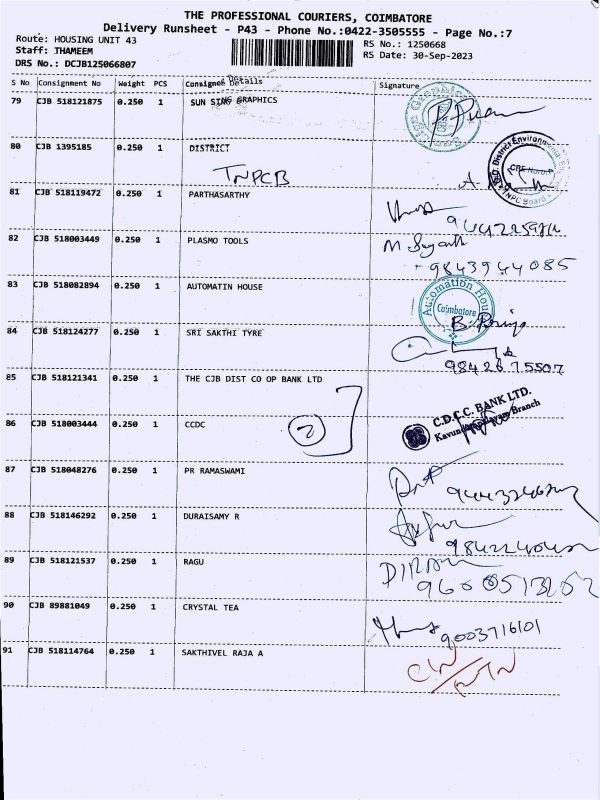 THE PROFESSIONAL COURIERS, COIMBATORE
Delivery Runsheet - P43 - Phone No.:0422-3505555 - Page No.:7
Route: HOUSING UNIT 43
RS No.: 1250668
Staff: THAMEEM
RS Date: 30-Sep-2023
DRS No.: DCJB125066807
S No Consignment No Weight PCS Consignee Details Signature
79 CJB 518121875 0.250 1 SUN GRAPHICS
80 CJB 1395185 0.250 1 DISTRICT
TNPCB
81 CJB 518119472 0.250 1 PARTHASARTHY
82 CJB 518003449 0.250 1 PLASMO TOOLS
9843944085
83 CJB 518082894 0.250 1 AUTOMATIN HOUSE
Automation House
Coimbatore
84 CJB 518124277 0.250 1 SRI SAKTHI TYRE
9842675507
85 CJB 518121341 0.250 1 THE CJB DIST CO OP BANK LTD
C.D.C.C. BANK LTD.
Branch
86 CJB 518003444 0.250 1 CCDC
2
87 CJB 518048276 0.250 1 PR RAMASWAMI
88 CJB 518146292 0.250 1 DURAISAMY R
89 CJB 518121537 0.250 1 RAGU
90 CJB 89881049 0.250 1 CRYSTAL TEA
9003716101
91 CJB 518114764 0.250 1 SAKTHIVEL RAJA A